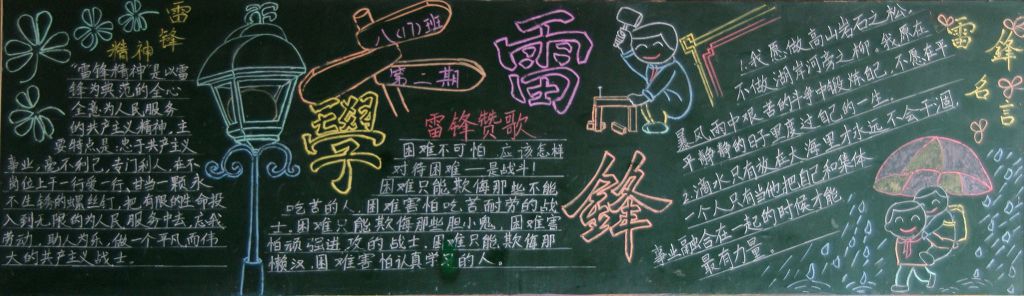 雷锋
精神
"雷锋精神"是以雷
锋为典范的全心
全意为人民服务
的共产主义精神,主
要特点是:忠于共产主义
事业,毫不利己,专门利人,在本
岗位上干一行爱一行,甘当一颗永
不生锈的螺丝钉,把有限的生命投
入到无限的为人民服务中去,忘我
劳动,助人为乐,做一个平凡而伟
大的共产主义战士。
八(17)班
第二期
學
雷
鋒
雷锋赞歌
困难不可怕,应该怎样
对待困难——是战斗!
困难只能欺侮那些不能
吃苦的人,困难害怕吃苦耐劳的战
士.困难只能欺侮那些胆小鬼,困难害
怕顽强进攻的战士.困难只能欺侮那
懒汉,困难害怕认真学习的人。
雷锋
名言
1.我愿做高山岩石之松,
不做湖岸河旁之柳.我愿在
暴风雨中艰苦的斗争中锻炼自己,不愿在平
平静静的日子里度过自己的一生.
2.滴水只有放在大海里才永远不会干涸,
一个人只有当他把自己和集体
事业融合在一起的时候才能
最有力量